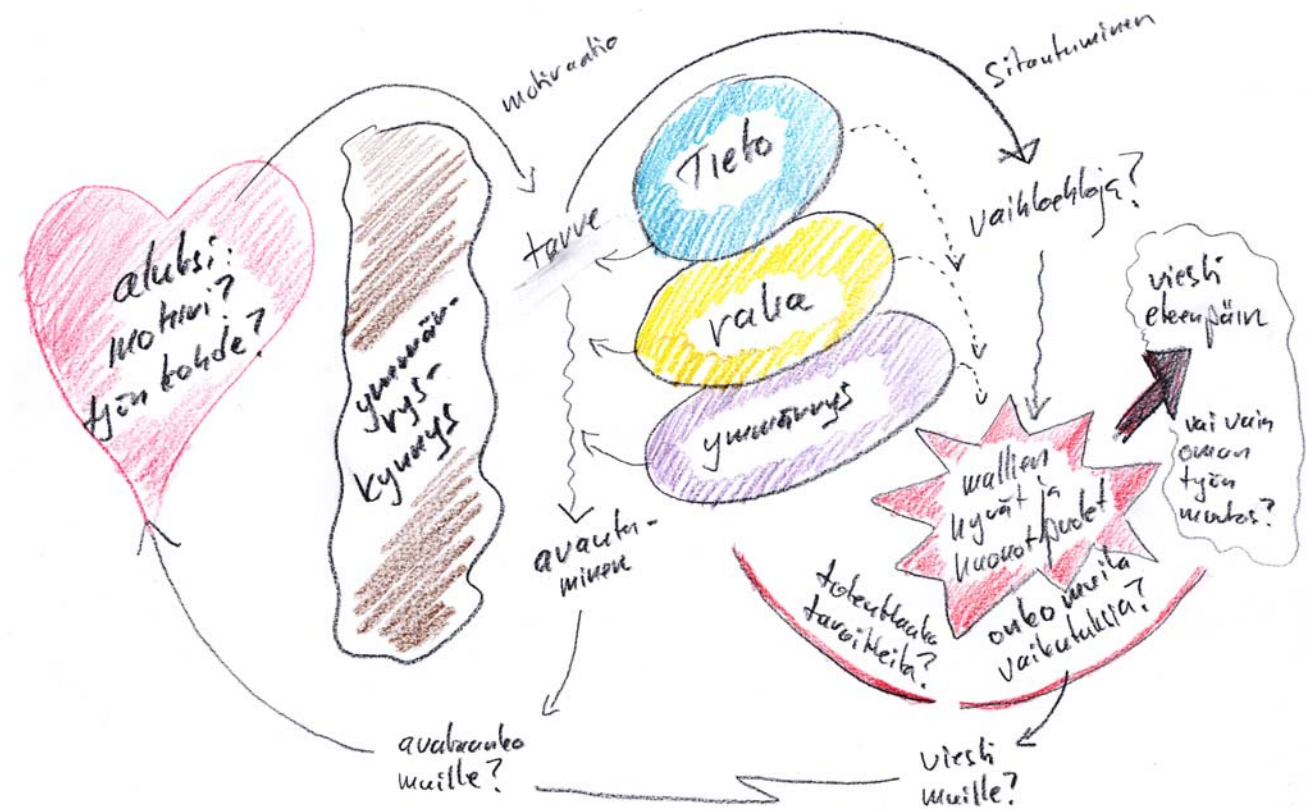 motivaatio
Sitoutuminen
aluksi:
motiivi?
työn kohde?
ymmär-
rys-
kynnys
tarve
Tieto
raha
ymmärrys
vaihtoehtoja?
viesti
eteenpäin
vai vain
oman
työn
muutos?
mallien
hyvät ja
huonot puolet
avautu-
minen
toteuttaako
tavoitteita?
onko muita
vaikutuksia?
avataanko
muille?
viesti
muille?